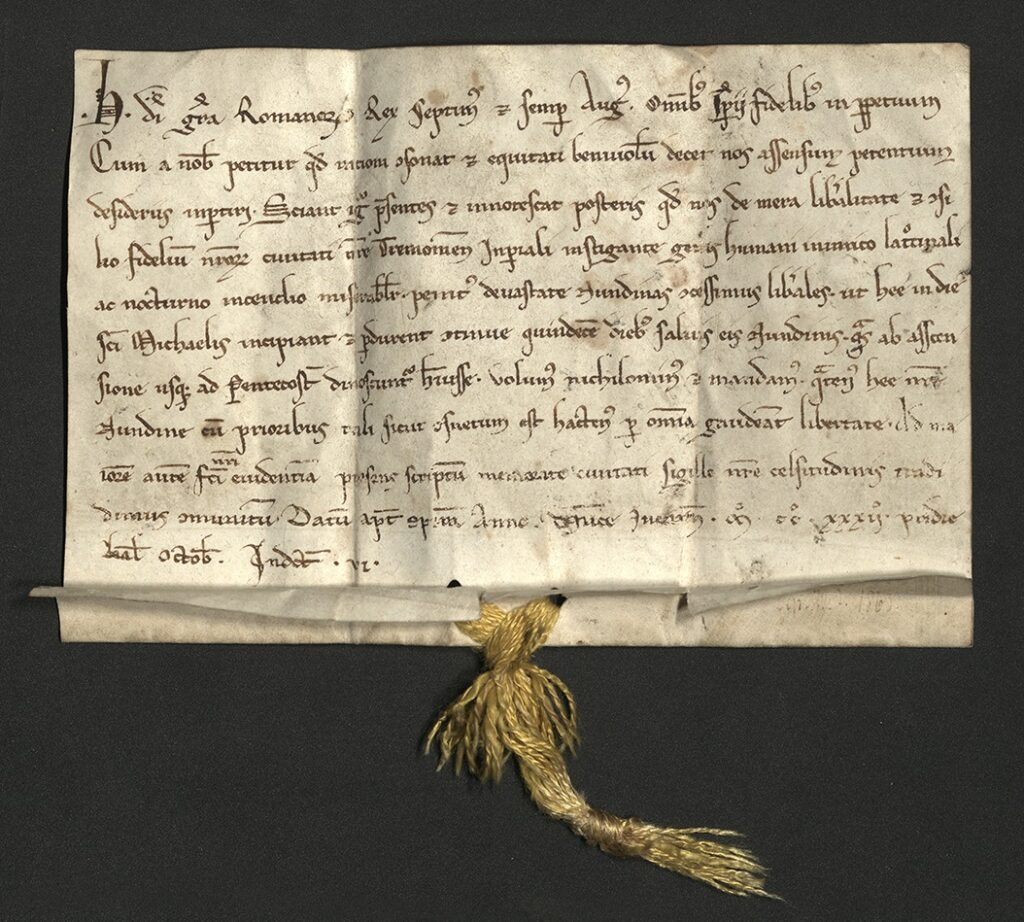 .H. di gra Romanor Rex Septim⁹ ⁊ semp Aug⁹. Omib⁹ Ipii fidelib⁹ in ppetuum
Cum a nob petitur qd rationi ↄsonat ⁊ equitati benivolū decet nos assensum petentium
desideriis inptiri. Sciant igᵒ psentes ⁊ innotescat posteris qd nos de mera libalitate ⁊ ↄsi
lio fidelium nror civitati nre Tremonien Inpiali instigante gen⁹is humani inimico
ac nocturno incendio miserablr. penit⁹ devastate Nundinas ↄcessimus libales. ut hee in die
sci Michaelis incipiant ⁊ pdurent ↄtinue quindecē dieb⁹ salvis eis Nundinis. qas ab asscen
sione usq; ad Pentecost dinoscunt⁹ huisse. volum⁹ nichilomin⁹ ⁊ mandam⁹. qaten⁹ hee nre
Nundine cū prioribus tali sicut ↄsuetum est hacten⁹ p omnia gaudeāt libertate. Ad ma
iorē autē fci nri evidentiā psens scriptū memorate civitati sigillo nre celsitudinis tradi
dimus ↄmunitū. Datū apᵈ Anno. Dnice Incarn. M. CC. XXXII. pridie
kal octob. Indict. vi.